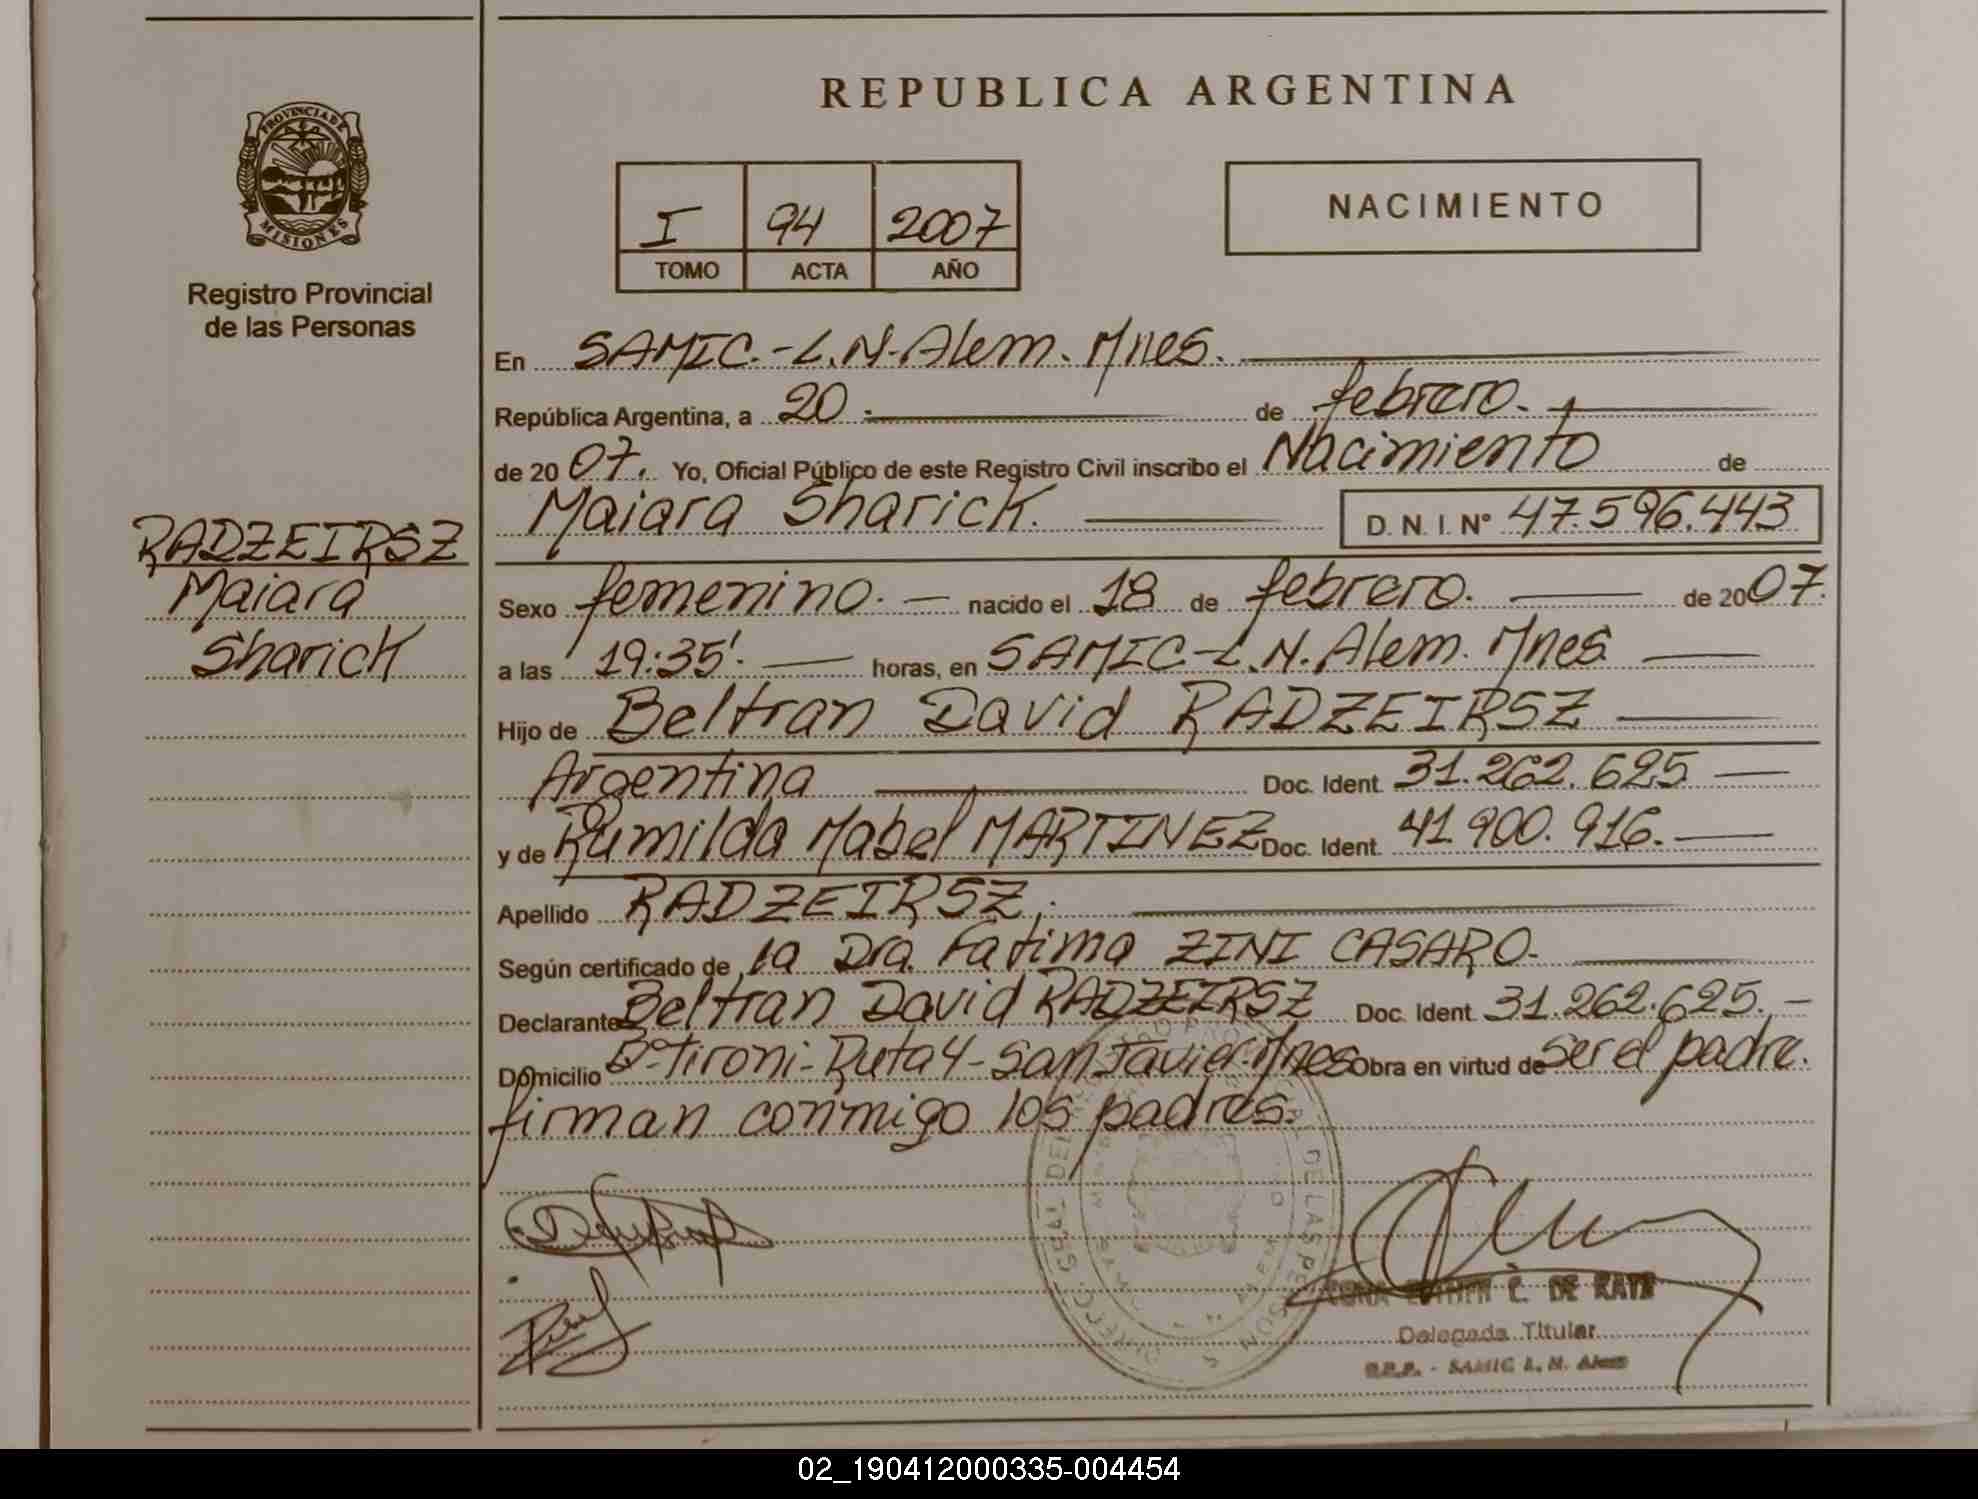 REPUBLICA ARGENTINA
PROVINCIA DE
MISIONES
Registro Provincial
de las Personas
I 94 2007
TOMO ACTA AÑO
NACIMIENTO
En SAMIC.-L.N.Alem. Mnes.
República Argentina, a 20 de febrero.
de 20 07. Yo, Oficial Público de este Registro Civil inscribo el Nacimiento de
Maiara Sharick. D. N. I. N° 47.596.443
RADZEIRSZ
Maiara
Sharick
Sexo femenino. nacido el 18 de febrero. de 2007.
a las 19:35'. horas, en SAMIC-L.N.Alem. Mnes
Hijo de Beltran David RADZEIRSZ
Argentina Doc. Ident. 31.262.625
y de Rumilda Mabel MARTINEZ Doc. Ident. 41.900.916.
Apellido RADZEIRSZ.
Según certificado de la Dra. Fatima ZINI CASARO.
Declarante Beltran David RADZEIRSZ Doc. Ident. 31.262.625.
Domicilio B°-Tironi-Ruta 4-San Javier-Mnes Obra en virtud de ser el padre.
firman conmigo los padres.
C. DE
Delegada Titular
R.P.P. - SAMIC L. N. Alem
02_190412000335-004454